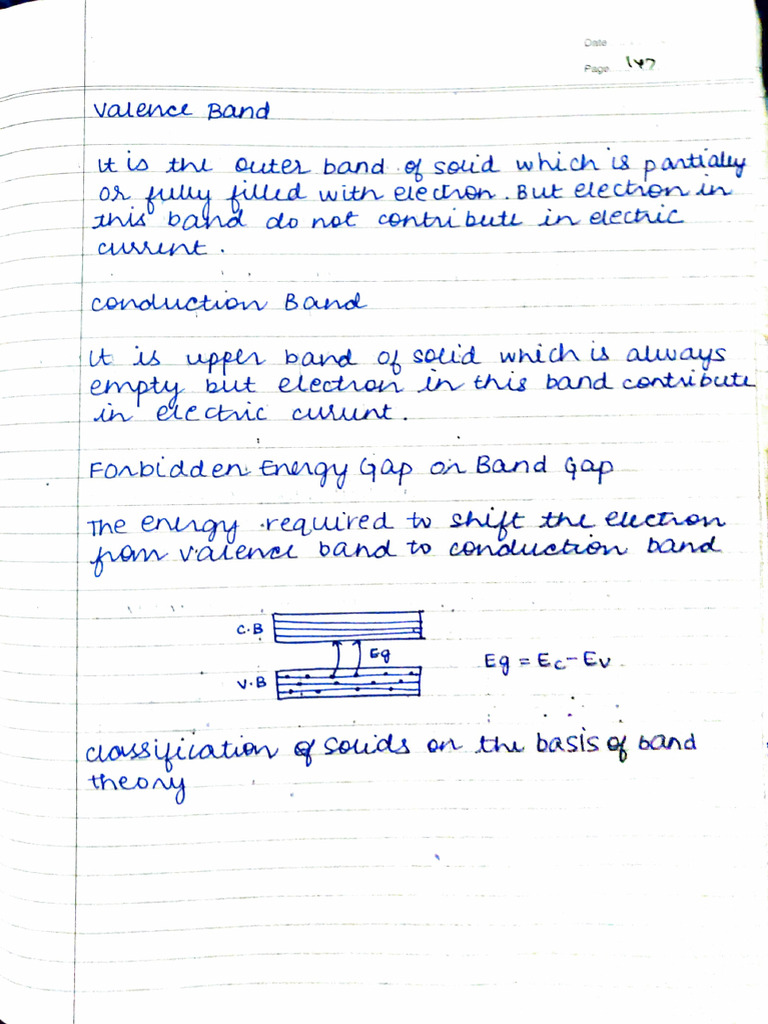 Date
Page 147
Valence Band
It is the outer band of solid which is partially
or fully filled with electron. But electron in
this band do not contribute in electric
current.
Conduction Band
It is upper band of solid which is always
empty but electron in this band contribute
in electric current.
Forbidden Energy Gap or Band Gap
The energy required to shift the electron
from valence band to conduction band
C.B
Eg
V.B
Eg = Ec - Ev
Classification of solids on the basis of band
theory